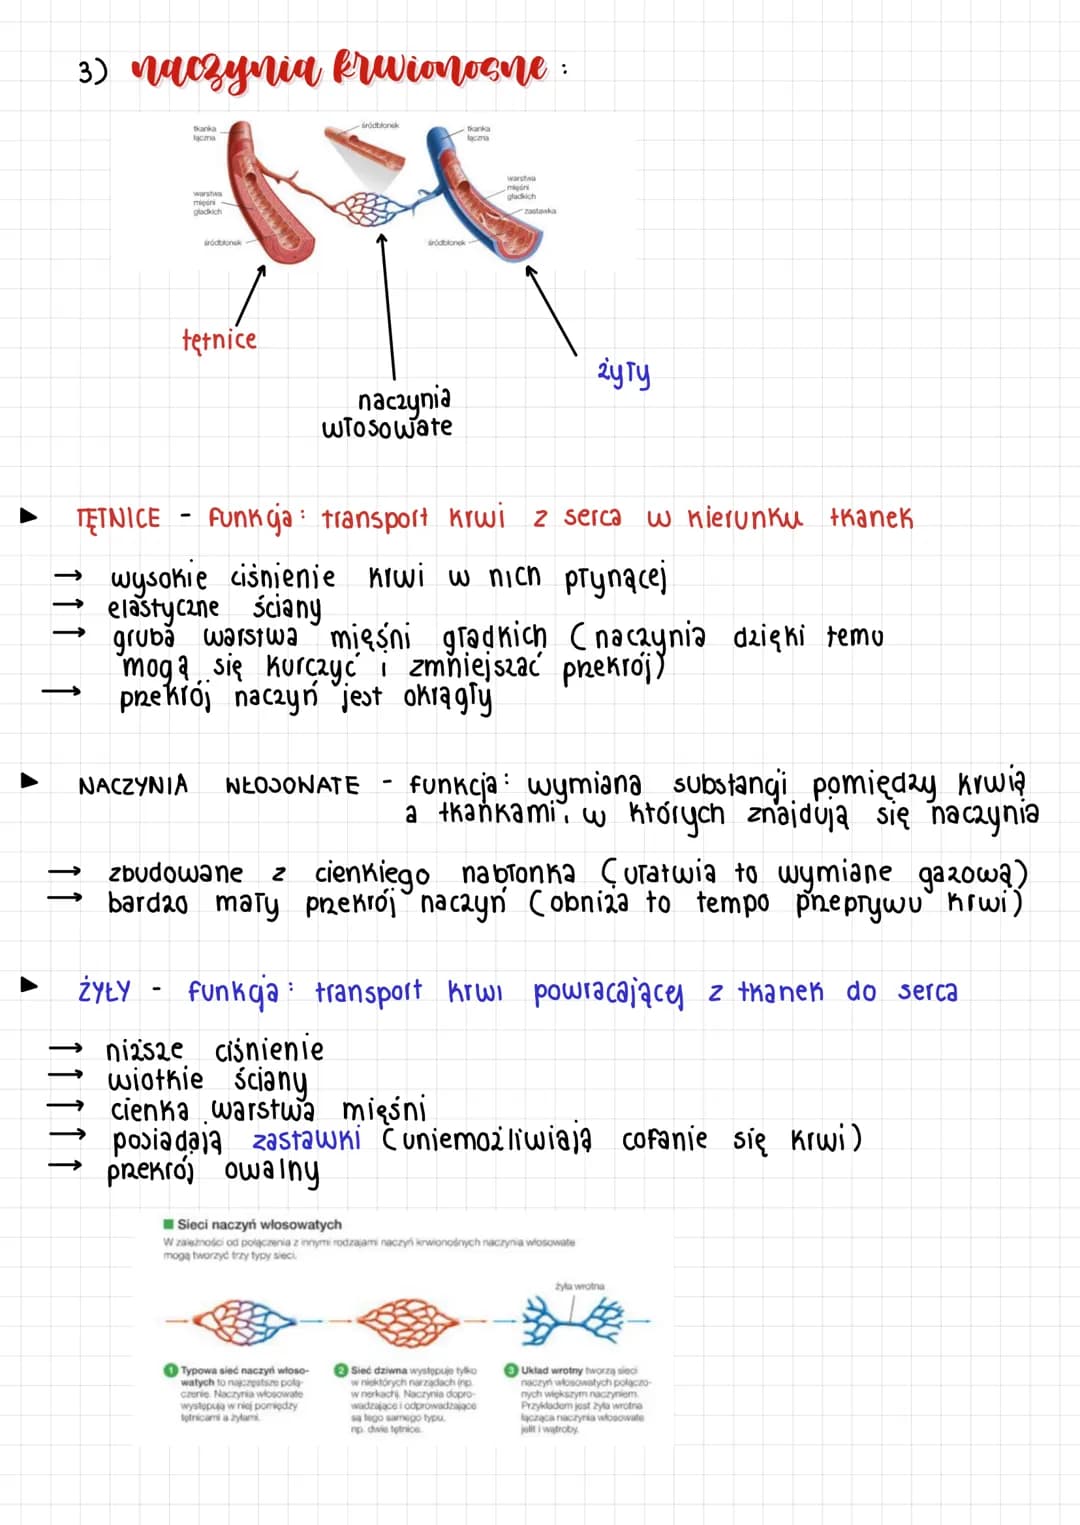 3) naczynia krwionosne :
tkanka
łączna
śródbłonek
tkanka
łączna
warstwa
mięśni
gładkich
warstwa
mięśni
gładkich
zastawka
śródbłonek
śródbłonek
tętnice
żyły
naczynia
włosowate
TĘTNICE - funkcja : transport krwi z serca w kierunku tkanek
→ wysokie ciśnienie krwi w nich płynącej
→ elastyczne ściany
→ gruba warstwa mięśni gładkich (naczynia dzięki temu
mogą się kurczyć i zmniejszać przekrój)
→ przekrój naczyń jest okrągły
NACZYNIA WŁOSOWATE - funkcja : wymiana substancji pomiędzy krwią
a tkankami, w których znajdują się naczynia
→ zbudowane z cienkiego nabłonka (ułatwia to wymiane gazową)
→ bardzo mały przekrój naczyń (obniża to tempo przepływu krwi)
ŻYŁY - funkcja : transport krwi powracającej z tkanek do serca
→ niższe ciśnienie
→ wiotkie ściany
→ cienka warstwa mięśni
→ posiadają zastawki (uniemożliwiają cofanie się krwi)
→ przekrój owalny
Sieci naczyń włosowatych
W zależności od połączenia z innymi rodzajami naczyń krwionośnych naczynia włosowate
mogą tworzyć trzy typy sieci.
żyła wrotna
1 Typowa sieć naczyń włoso-
watych to najczęstsze połą-
czenie. Naczynia włosowate
występują w niej pomiędzy
tętnicami a żyłami.
2 Sieć dziwna występuje tylko
w niektórych narządach (np.
w nerkach). Naczynia dopro-
wadzające i odprowadzające
są tego samego typu,
np. dwie tętnice.
3 Układ wrotny tworzą sieci
naczyń włosowatych połączo-
nych większym naczyniem.
Przykładem jest żyła wrotna
łącząca naczynia włosowate
jelit i wątroby.